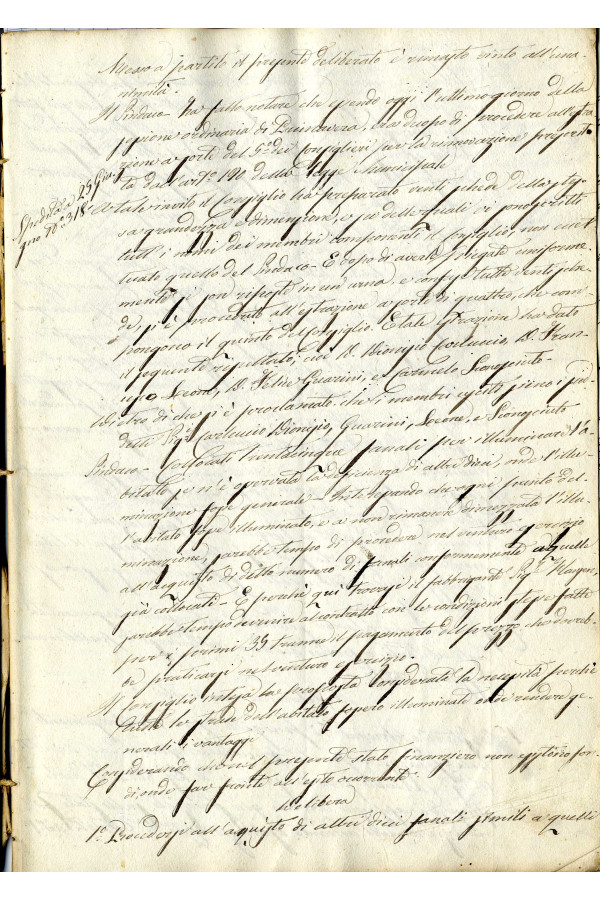 Messo a partito il presente deliberato è rimasto vinto all'una-
nimità.
Il Sindaco ha fatto notare che essendo oggi l'ultimo giorno della
sessione ordinaria di Primavera, era d'uopo di procedere all'estra-
zione a sorte del 5º dei Consiglieri per la rinnovazione prescrit-
ta dall'art.º 190 della Legge Municipale
Spedita a 25 Giu-
gno 70 nº 318
A tale invito il Consiglio ha preparato venti schede della stes-
sa grandezza e dimensione, e su delle quali vi sono scritti
tutti i nomi dei membri componenti il Consiglio, non eccet-
tuato quello del Sindaco - E dopo di averle piegate uniforme-
mente si son riposte in un'urna, e confuse tutte venti sche-
de, si è proceduto all'estrazione a sorte di quattro, che com-
pongono il quinto del Consiglio. E tale estrazione ha dato
il seguente risultato, cioè D. Dionisio Carluccio, D. Fran-
cesco Leone, D. Felice Guarini, e Carmelo Scongiuto -
Dietro di che si è proclamato che i membri usciti sieno i sud-
detti Sig.ri Carluccio Dionisio, Guarini, Leone, e Scongiuto
Sindaco - Collocati trentacinque fanali per illuminare l'a-
bitato se n'è osservata la deficienza di altri dieci, onde l'illu-
minazione fosse generale - Interessando che ogni punto del-
l'abitato fosse illuminato, e a non rimanere dimezzata l'illu-
minazione, sarebbe tempo di procedere nel venturo esercizio
all'acquisto di detto numero di fanali conformemente a quelli
già collocati - E poichè qui trovasi il fabbricante Sig.r
sarebbe tempo devenire al contratto con le condizioni stesse fatte
per i primi 35 tranne il pagamento del prezzo che dovreb-
be praticarsi nel venturo esercizio -
Il Consiglio intesa la proposta considerata la necessità perchè
tutte le strade dell'abitato fossero illuminate onde rendere ge-
nerali i vantaggi
Considerando che nel presente stato finanziero non esistono fon-
di onde far fronte all'esito occorrente
Delibera
1º Procedersi all'acquisto di altri dieci fanali simili a quelli